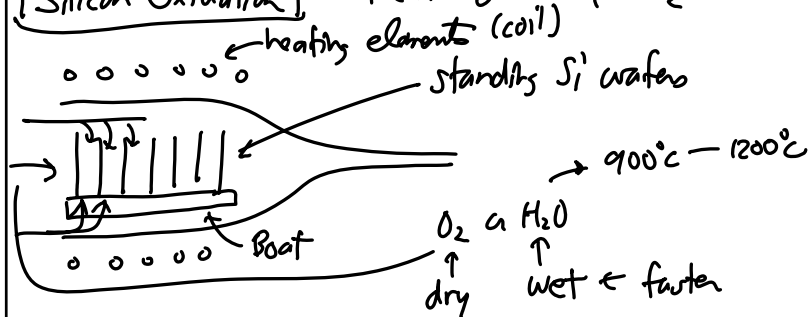 [Silicon Oxidation]
heating elements (coil)
standing Si wafers
900°C — 1200°C
O₂ or H₂O
Boat
dry
wet ← faster